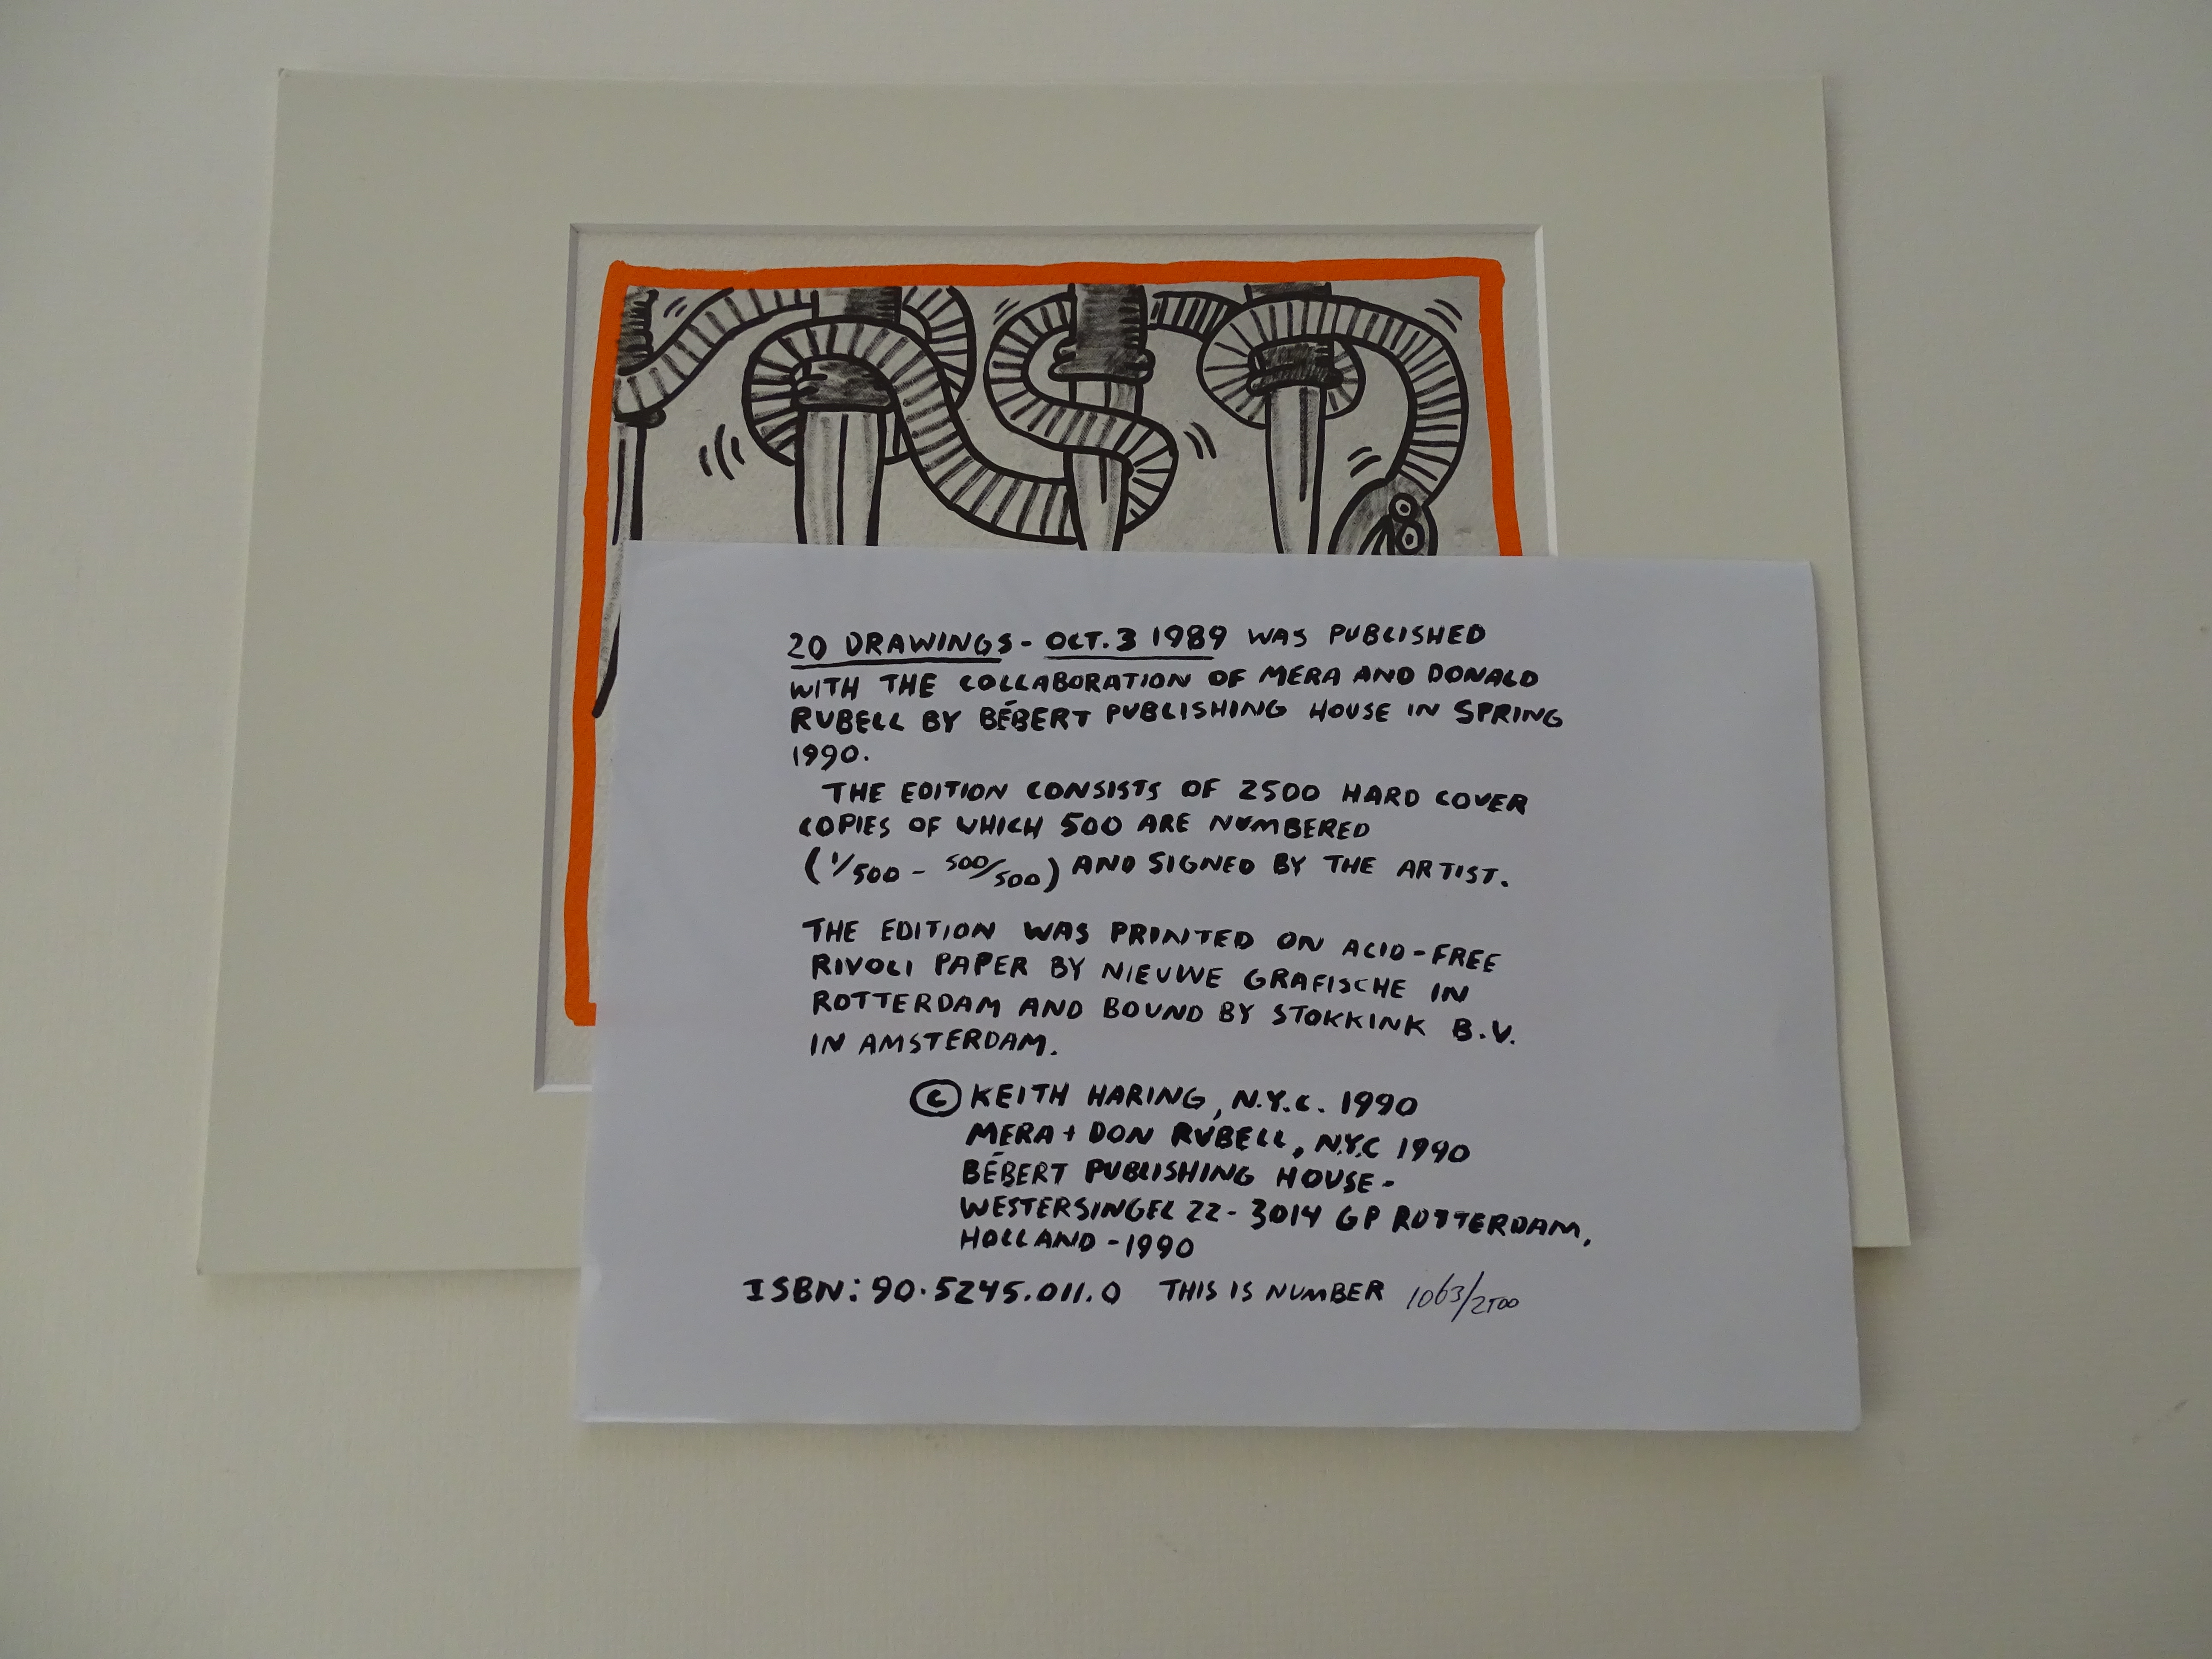 20 DRAWINGS - OCT. 3 1989 WAS PUBLISHED
WITH THE COLLABORATION OF MERA AND DONALD
RUBELL BY BÉBERT PUBLISHING HOUSE IN SPRING
1990.
THE EDITION CONSISTS OF 2500 HARD COVER
COPIES OF WHICH 500 ARE NUMBERED
(1/500 - 500/500) AND SIGNED BY THE ARTIST.
THE EDITION WAS PRINTED ON ACID-FREE
RIVOLI PAPER BY NIEUWE GRAFISCHE IN
ROTTERDAM AND BOUND BY STOKKINK B.V.
IN AMSTERDAM.
© KEITH HARING, N.Y.C. 1990
MERA + DON RUBELL, N.Y.C 1990
BÉBERT PUBLISHING HOUSE -
WESTERSINGEL 22 - 3014 GP ROTTERDAM,
HOLLAND - 1990
ISBN: 90.5245.011.0 THIS IS NUMBER 1063/2500